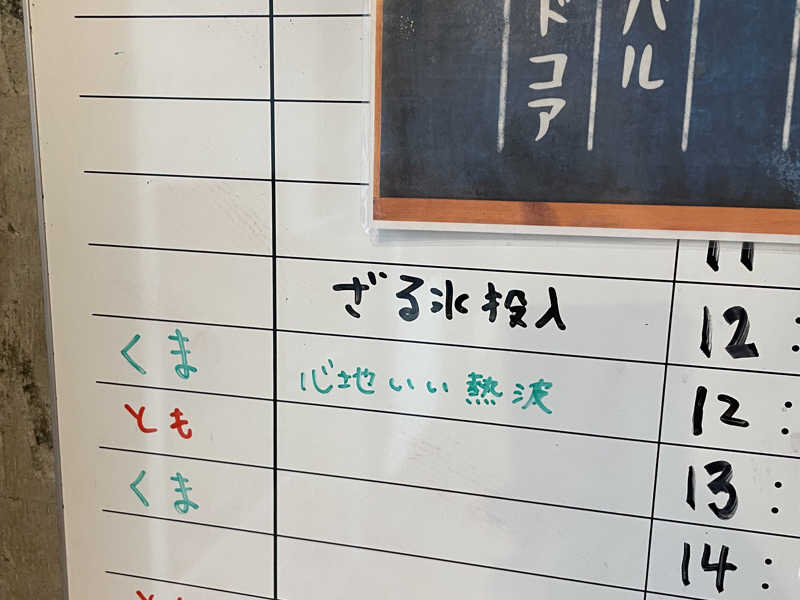 バル
ドコア
11
ざる氷投入
12:
くま
心地いい熱波
12:
とも
くま
13:
14: